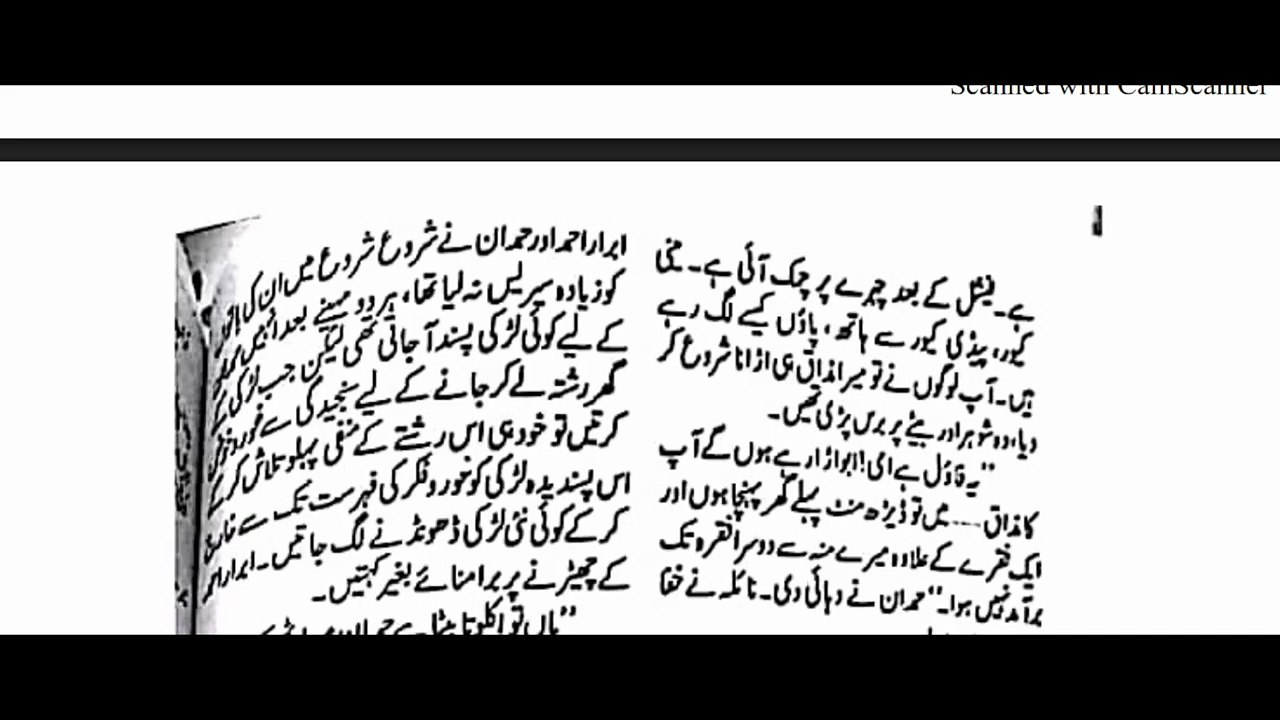 Scanned with CamScanner
ہے۔ فیشل کے بعد چہرے پر چمک آئی ہے۔ مینی
کیور، پیڈی کیور سے ہاتھ، پاؤں کیسے لگ رہے
ہیں۔ آپ لوگوں نے تو میرا مذاق ہی اڑانا شروع کر
دیا، وہ شوہر اور بیٹے پر برس پڑی تھیں۔
”یہ فاؤل ہے امی! ابو اڑا رہے ہوں گے آپ
کا مذاق .... میں تو ڈیڑھ منٹ پہلے گھر پہنچا ہوں اور
ایک فقرے کے علاوہ میرے منہ سے دوسرا فقرہ تک
برآمد نہیں ہوا۔“ حمدان نے دہائی دی۔ نائلہ نے خفا
ابرار احمد اور حمدان نے شروع شروع میں ان کی باتوں
کو زیادہ سیریس نہ لیا تھا، ہر دو مہینے بعد انہیں
کے لیے کوئی لڑکی پسند آ جاتی تھی لیکن جب لڑکی کے
گھر رشتہ لے کر جانے کے لیے سنجیدگی سے غور و خوض
کرتیں تو خود ہی اس رشتے کے منفی پہلو تلاش کر کے
اس پسندیدہ لڑکی کو غور و فکر کی فہرست تک سے خارج
کر کے کوئی نئی لڑکی ڈھونڈنے لگ جاتیں۔ ابرار احمد
کے چھیڑنے پر برا منائے بغیر کہتیں۔
”ہاں تو اکلوتا بیٹا ہے